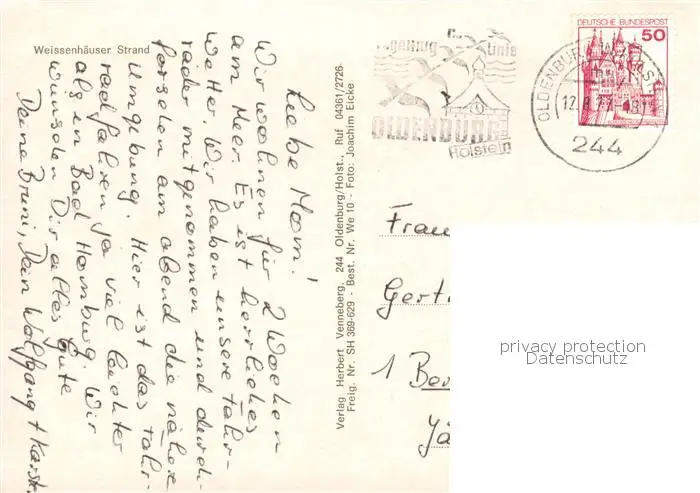 Weissenhäuser Strand
Liebe Mom!
Wir wohnen für 2 Wochen
am Meer. Es ist herrliches
Wetter. Wir haben unsere Fahr-
räder mitgenommen und durch-
forschen am abend die nähere
Umgebung. Hier ist das Fahr-
radfahren ja viel leichter
als in Bad Homburg. Wir
wünschen Dir alles Gute
Deine Bruni, Dein Wolfgang + Karst.
Verlag Herbert Venneberg, 244 Oldenburg/Holst., Ruf 04361/2726
Freig. Nr. SH 369-629 - Best. Nr. We 10 - Foto: Joachim Eicke
Linie
OLDENBURG
Holstein
DEUTSCHE BUNDESPOST
50
OLDENBURG
244
Frau
Gert
1 Ber
Jä
privacy protection
Datenschutz